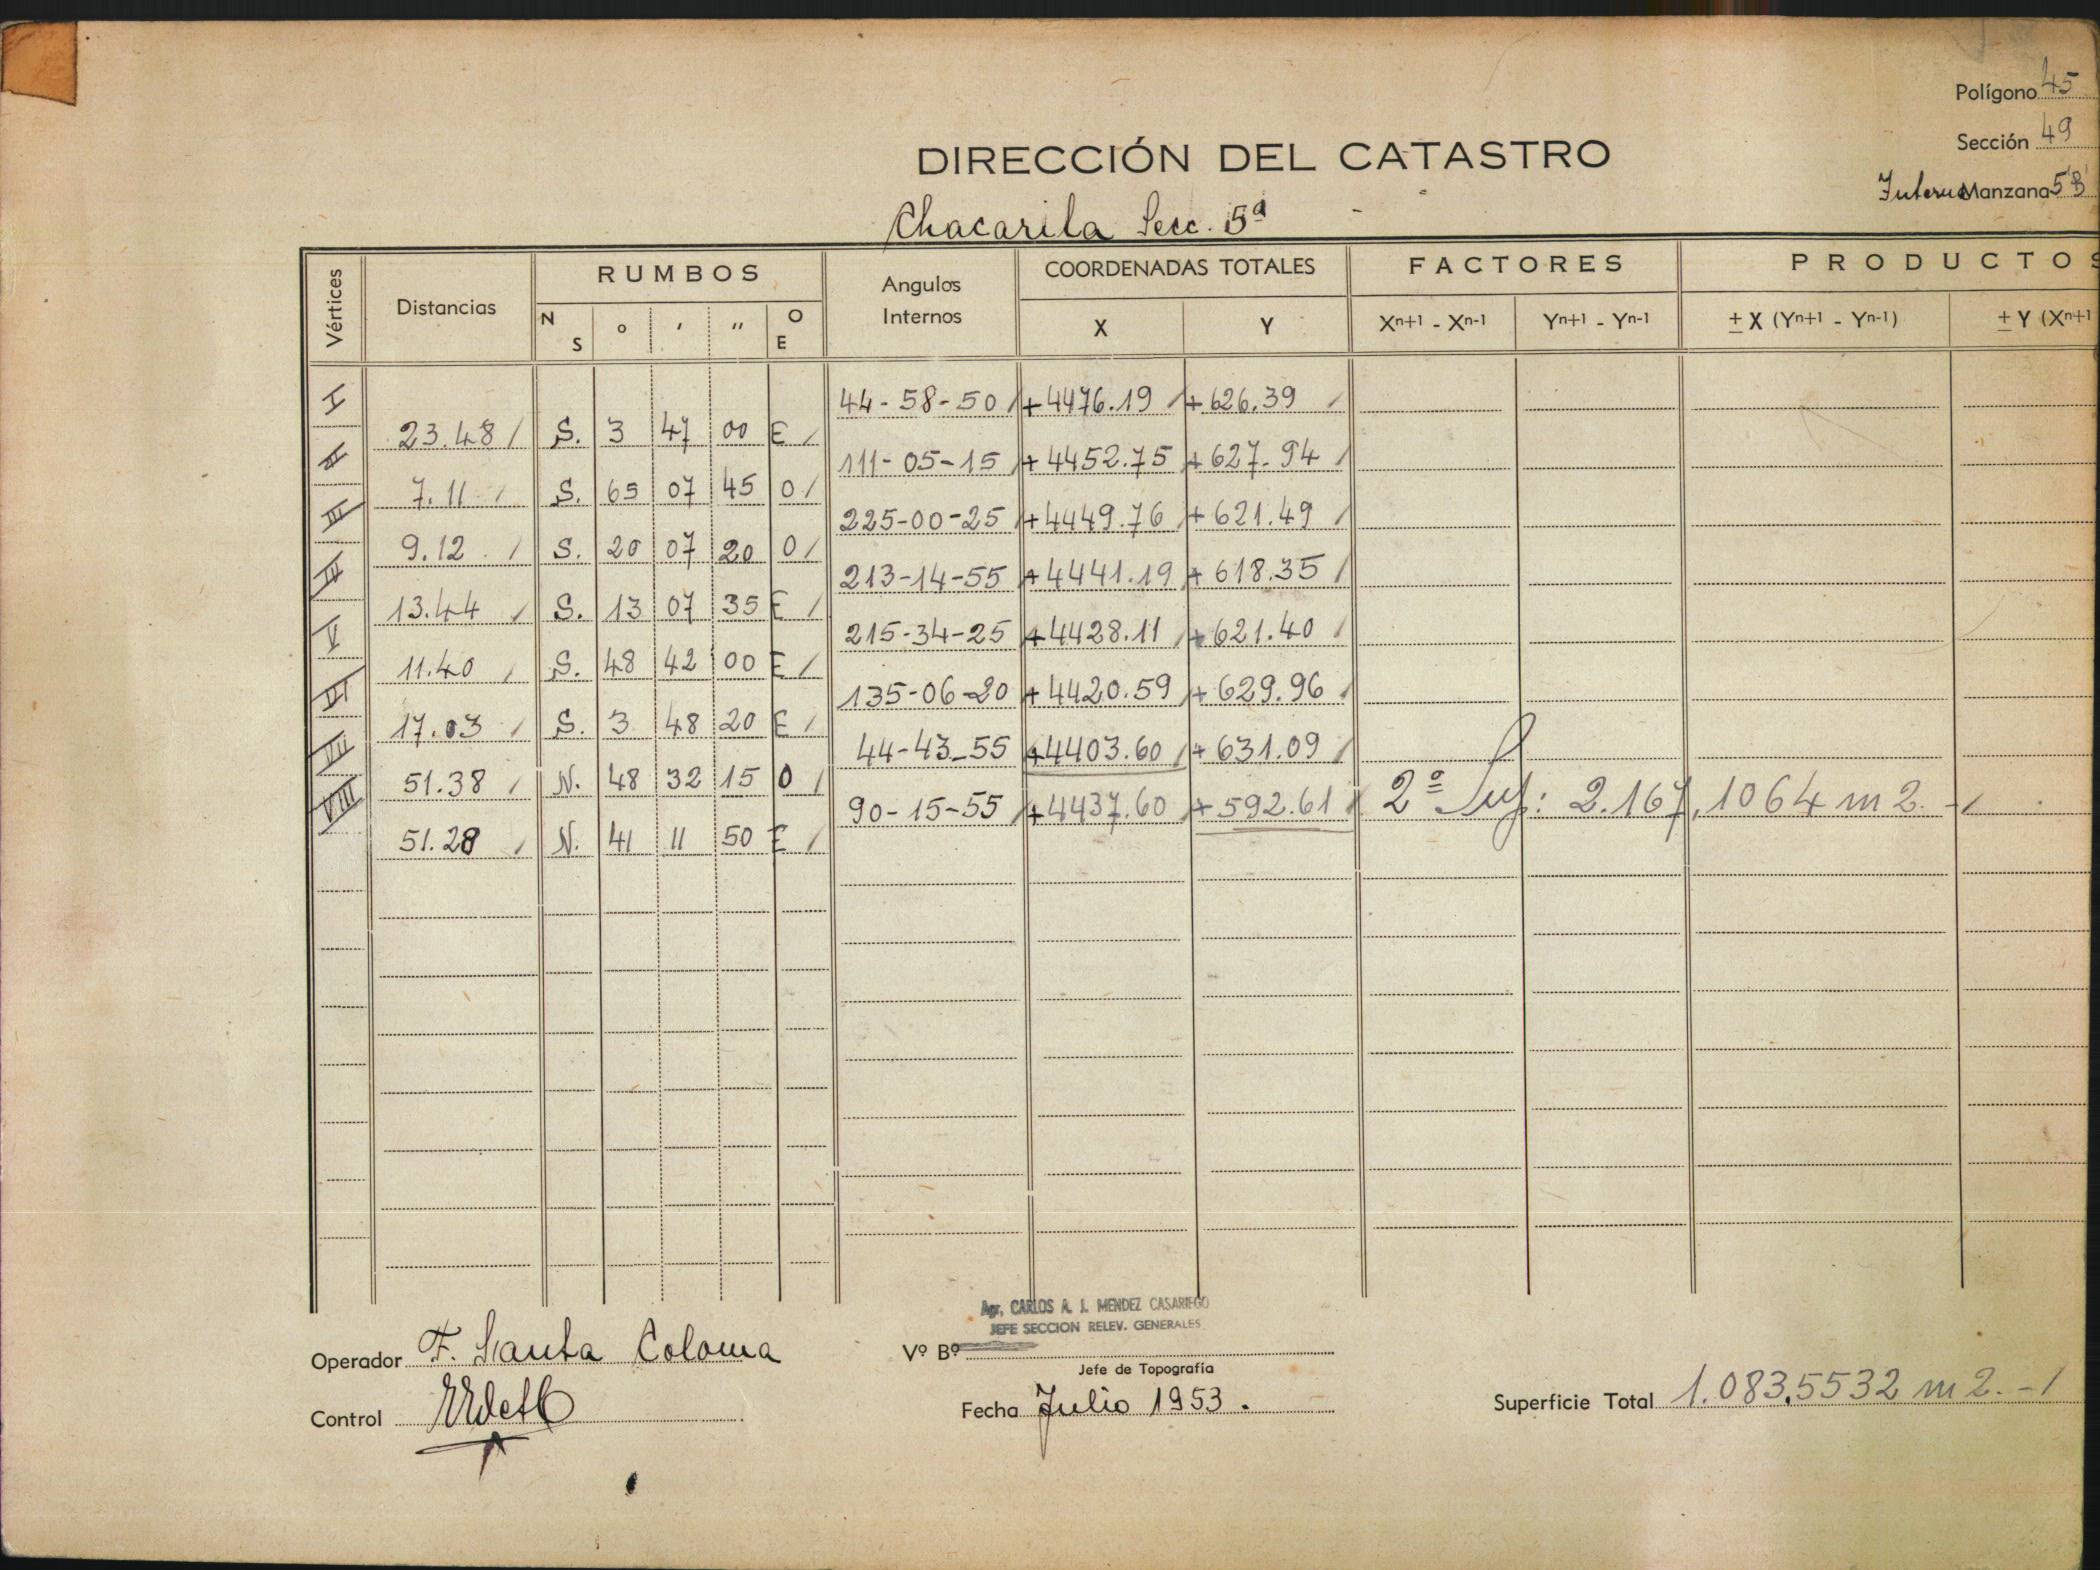 Polígono 45
DIRECCIÓN DEL CATASTRO
Sección 49
Interno Manzana 5'B'
Chacarita Secc. 5ª
Vértices Distancias RUMBOS Angulos Internos COORDENADAS TOTALES FACTORES PRODUCTOS
N S ° ' " O E X Y Xn+1 - Xn-1 Yn+1 - Yn-1 ± X (Yn+1 - Yn-1) ± Y (Xn+1
I 44-58-50 +4476.19 +626.39
23.48 S. 3 47 00 E
II 111-05-15 +4452.75 +627.94
7.11 S. 65 07 45 O
III 225-00-25 +4449.76 +621.49
9.12 S. 20 07 20 O
IV 213-14-55 +4441.19 +618.35
13.44 S. 13 07 35 E
V 215-34-25 +4428.11 +621.40
11.40 S. 48 42 00 E
VI 135-06-20 +4420.59 +629.96
17.03 S. 3 48 20 E
VII 44-43-55 +4403.60 +631.09
51.38 N. 48 32 15 O
VIII 90-15-55 +4437.60 +592.61 2ª Sup: 2.167,1064 m2.-
51.28 N. 41 11 50 E
Agr. CARLOS A. J. MENDEZ CASARIEGO
JEFE SECCION RELEV. GENERALES
Operador F. Santa Coloma
Vº Bº
Jefe de Topografía
Control
Fecha Julio 1953.
Superficie Total 1.083,5532 m2.-